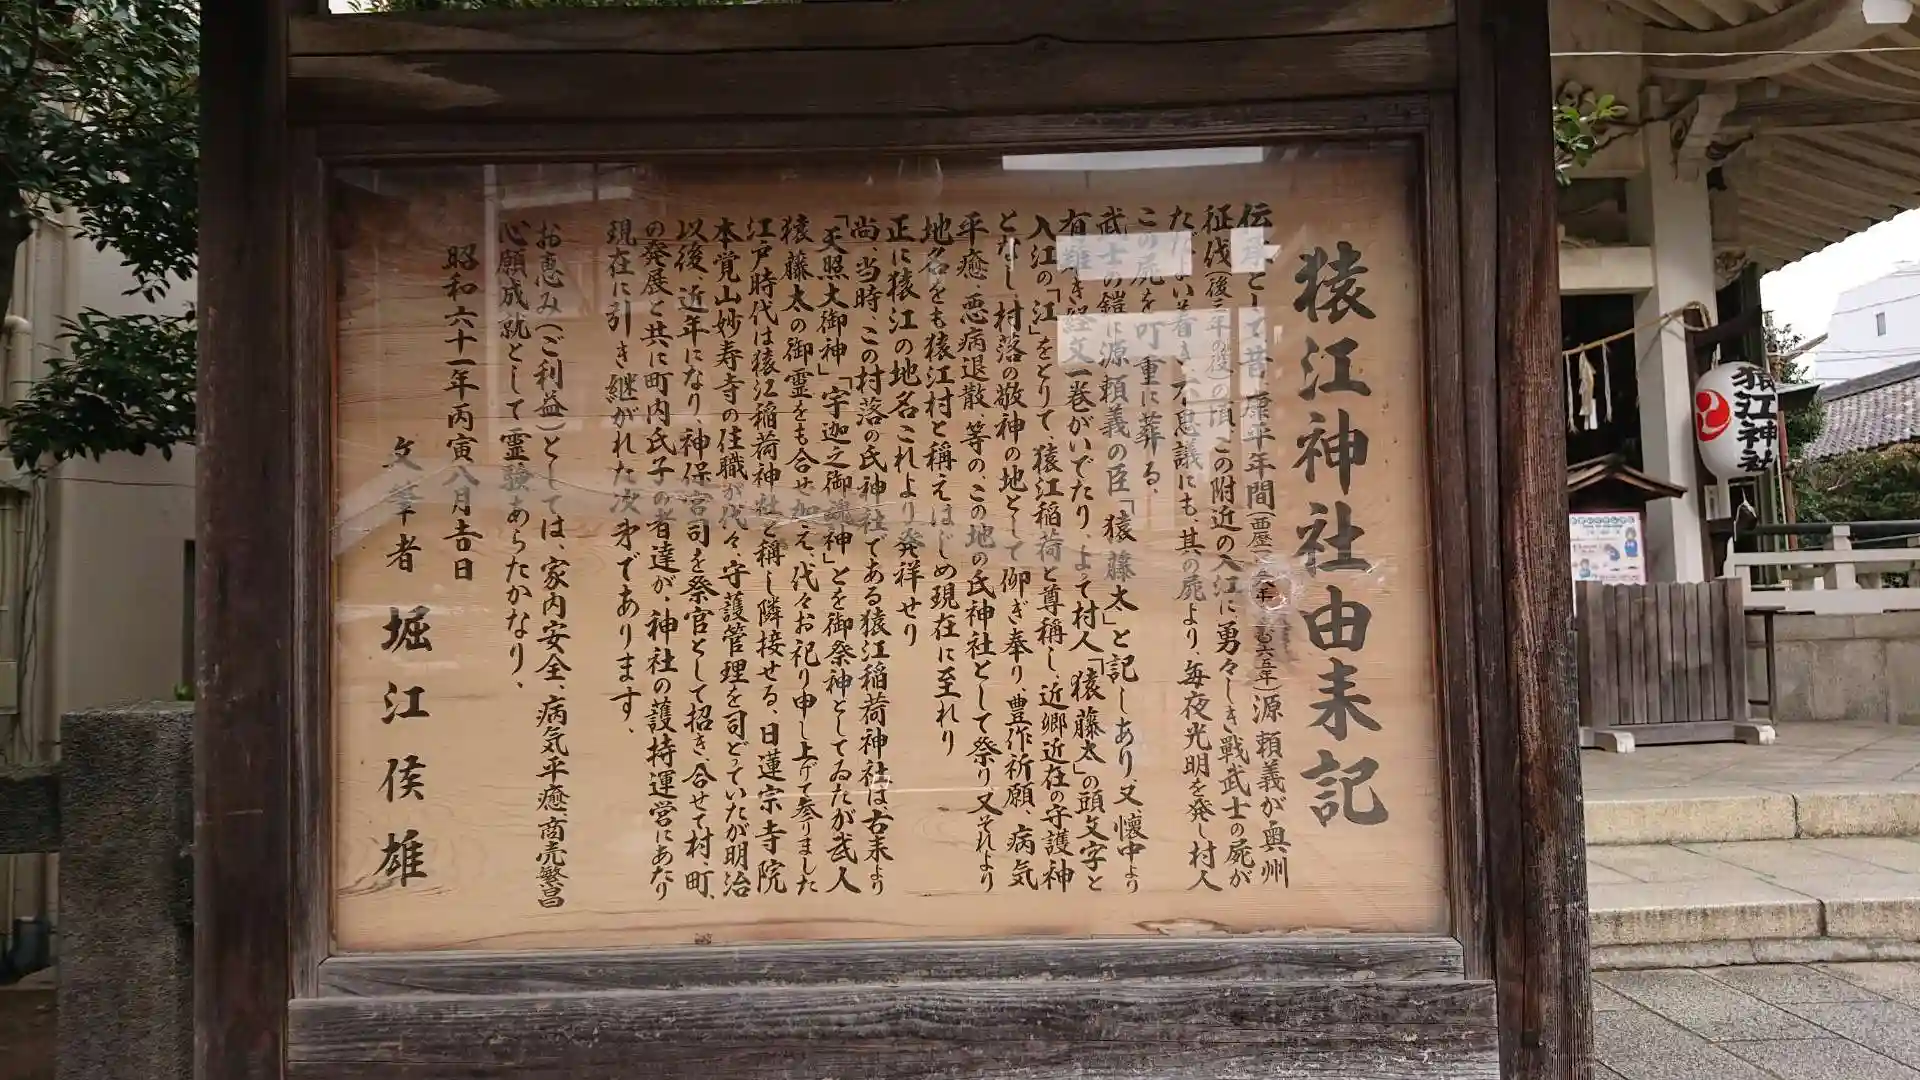 猿江神社由来記
伝承として昔、康平年間(西歴一〇六五年)源頼義が奥州
征伐(後三年の役)の頃、この附近の入江に勇々しき戦武士の屍が
ただよい着き、不思議にも、其の屍より、毎夜光明を発し村人
この屍を叮重に葬る、
武士の鎧に源頼義の臣「猿藤太」と記しあり、又、懐中より
有難き経文一巻がいでたり、よそ村人「猿藤太」の頭文字と
入江の「江」をとりて、猿江稲荷と尊称し、近郷近在の守護神
となし、村落の敬神の地として仰ぎ奉り、豊作祈願、病気
平癒、悪病退散、等の、この地の氏神社として祭り、又それより
地名をも猿江村と稱え、はじめ現在に至れり
正に猿江の地名これより発祥せり
尚、当時、この村落の氏神社である猿江稲荷神社は古来より
「天照大御神」「宇迦之御魂神」とを御祭神としてゐたが武人
猿藤太の御霊をも合せ加え、代々お祀り申し上げて参りました
江戸時代は猿江稲荷神社と稱し隣接せる、日蓮宗寺院
本覚山妙寿寺の住職が代々、守護管理を司どっていたが明治
以後、近年になり、神保宮司を祭官として招き、合せて村、町、
の発展と共に町内氏子の者達が、神社の護持運営にあたり
現在に引き継がれた次第であります、
お恵み(ご利益)としては、家内安全、病気平癒、商売繁昌
心願成就として霊験あらたかなり、
昭和六十一年丙寅八月吉日
文筆者 堀江俟雄
猿江神社